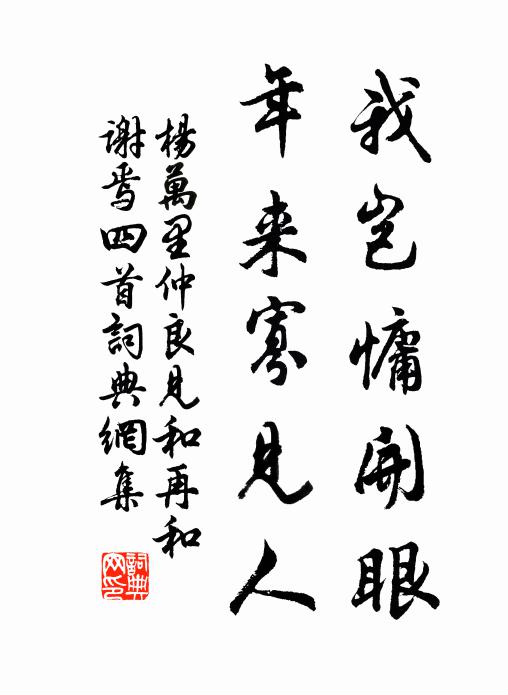 我岂慵開眼
年来寡見人
楊萬里仲良見和再和
謝焉四首詞典網集
詞典
网印